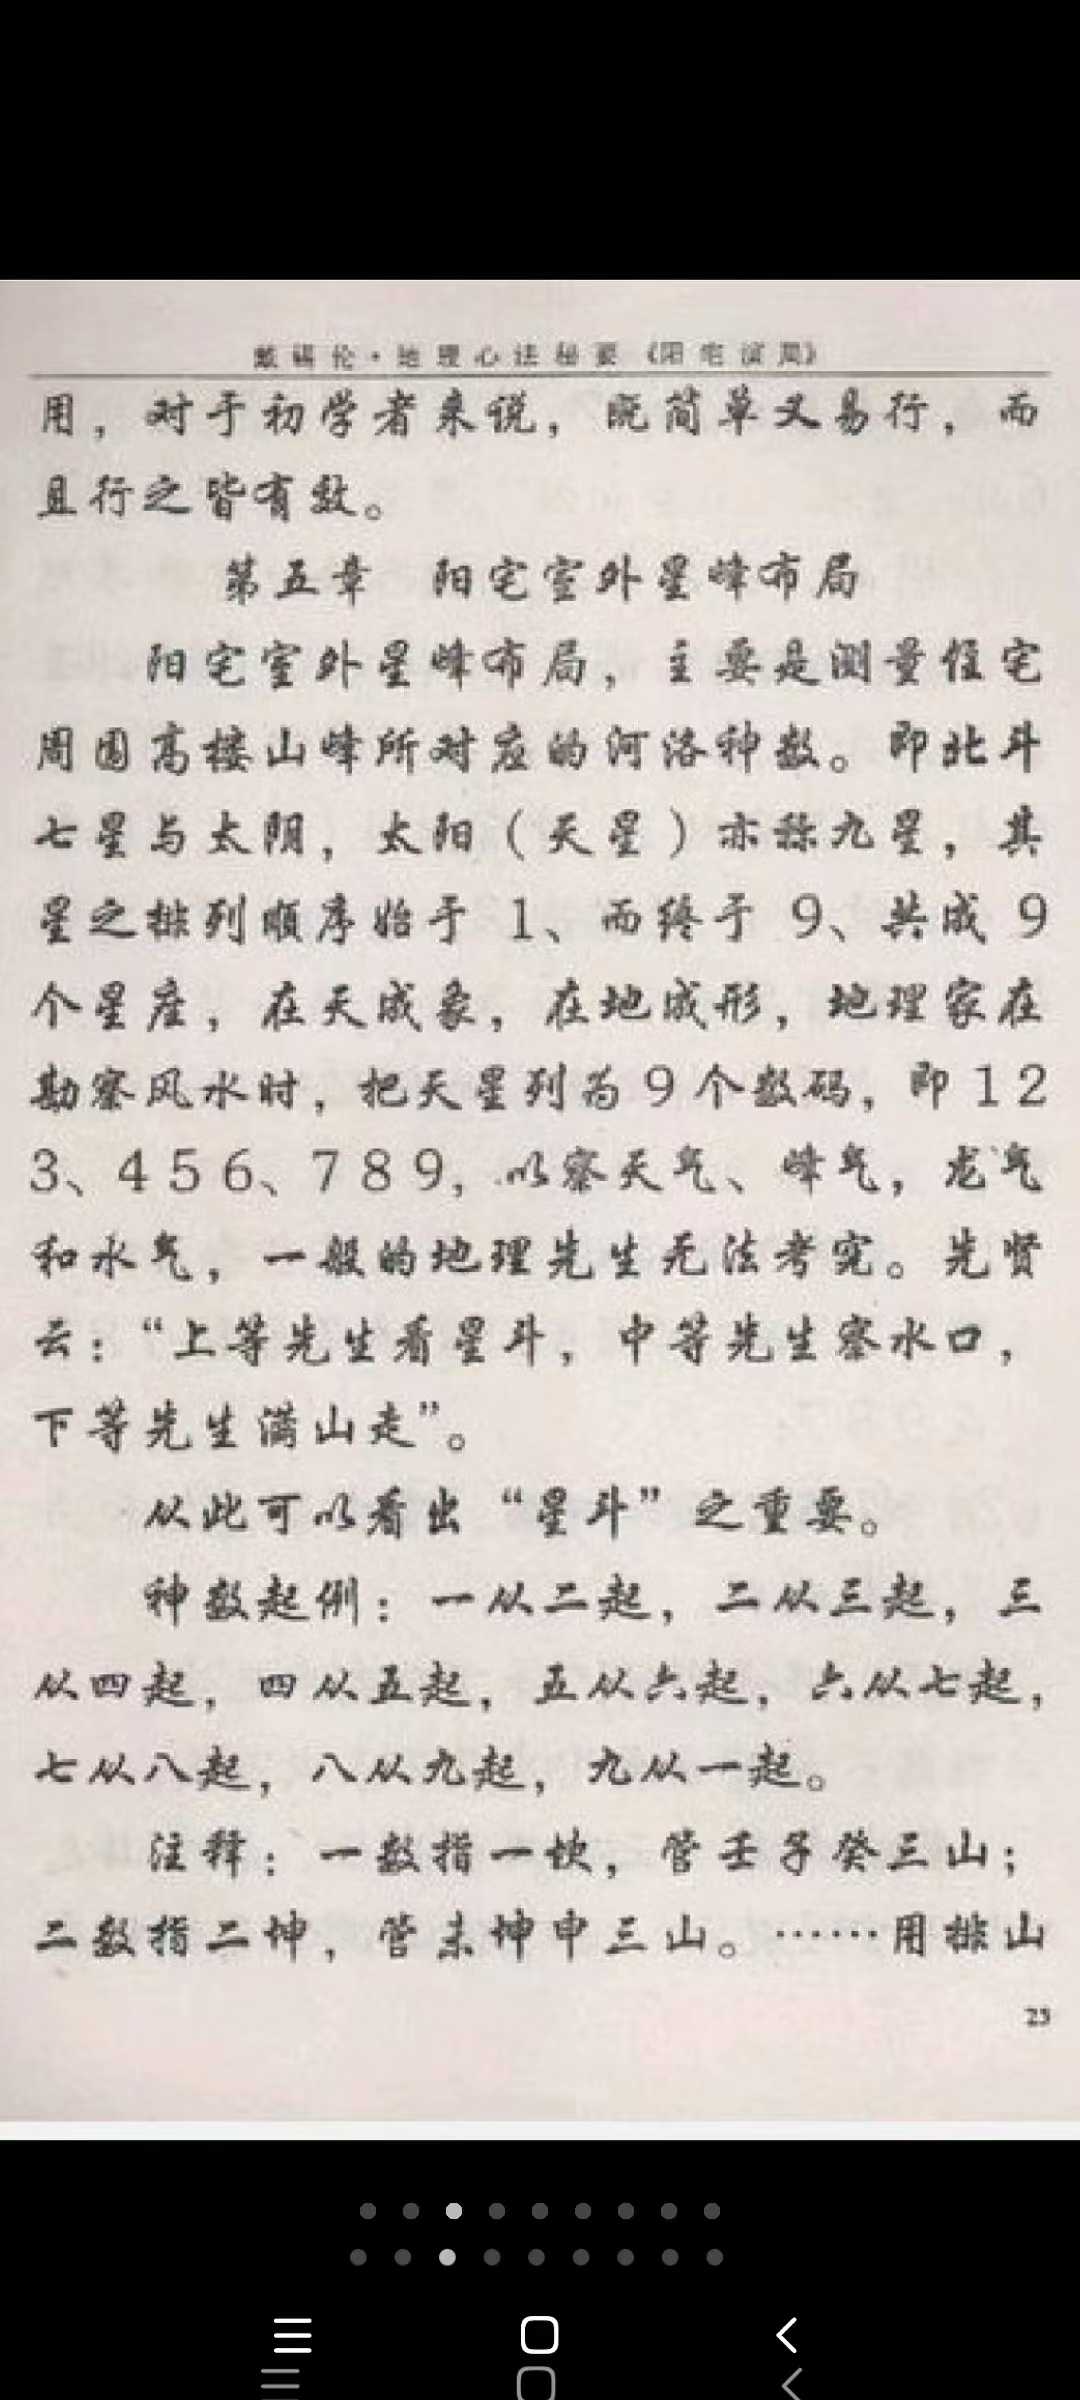 戴锡伦·地理心法秘要《阳宅演局》
用，对于初学者来说，既简单又易行，而
且行之皆有效。
第五章 阳宅室外星峰布局
阳宅室外星峰布局，主要是测量住宅
周围高楼山峰所对应的河洛神数。即北斗
七星与太阴，太阳（天星）亦称九星，其
星之排列顺序始于 1、而终于 9、共成 9
个星座，在天成象，在地成形，地理家在
勘察风水时，把天星列为9个数码，即12
3、456、789，以察天气、峰气，龙气
和水气，一般的地理先生无法考究。先贤
云：“上等先生看星斗，中等先生察水口，
下等先生满山走”。
从此可以看出“星斗”之重要。
神数起例：一从二起，二从三起，三
从四起，四从五起，五从六起，六从七起，
七从八起，八从九起，九从一起。
注释：一数指一坎，管壬子癸三山；
二数指二坤，管未坤申三山。……用排山
23